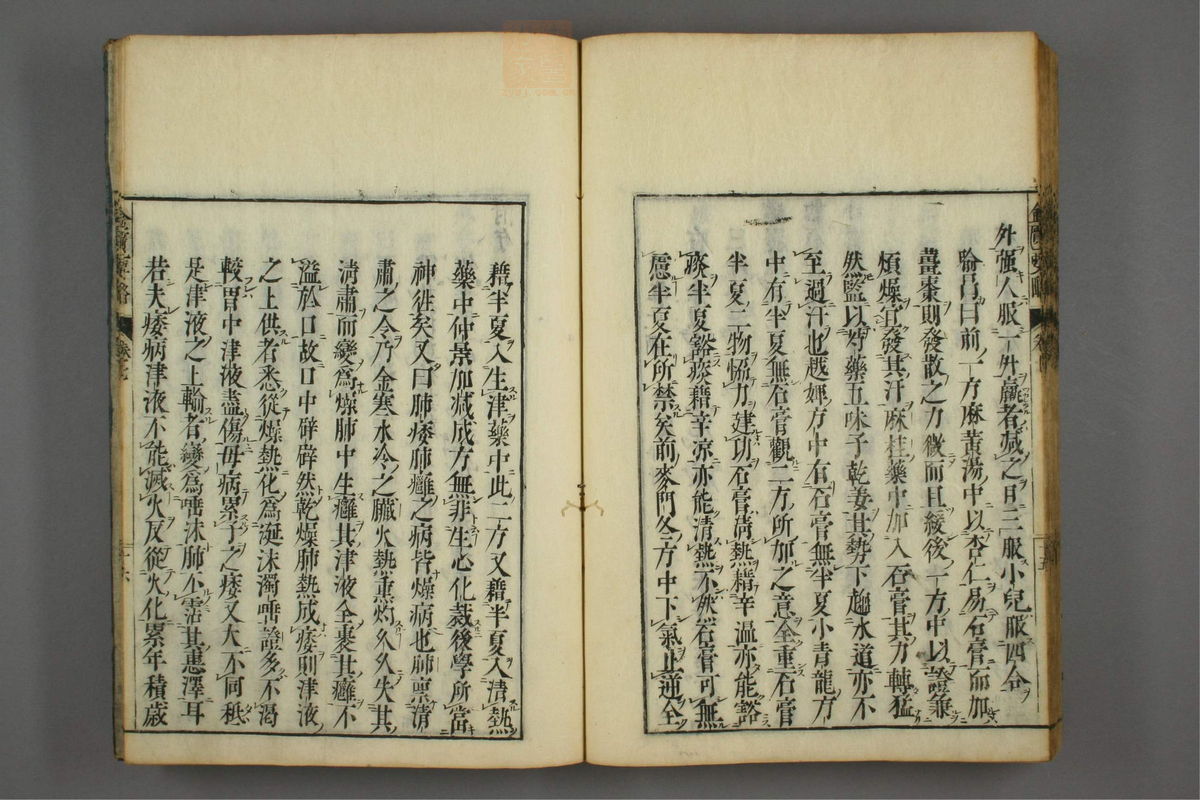 外強人服一升羸者減之日三服小兒服四合
喻昌曰前一方麻黃湯中以杏仁易石膏而加
薑棗則發散之力微而且緩後一方中以證兼
煩燥宜發其汗麻桂藥中加入石膏其力轉猛
然監以芍藥五味子乾姜其勢下趨水道亦不
至過汗也越婢方中有石膏無半夏小青龍方
中有半夏無石膏觀二方所加之意全重石膏
半夏二物恊力建功石膏清熱藉辛溫亦能豁
痰半夏豁痰藉辛涼亦能清熱不然石膏可無
慮半夏在所禁矣前麥門冬方中下氣止逆全
藉半夏入生津藥中此二方又藉半夏入清熱
藥中仲景加減成方無非生心化裁後學所當
神徃矣又曰肺痿肺癰之病皆燥病也肺稟清
肅之令乃金寒水冷之臓火熱熏灼久久失其
清肅而變為燥肺中生癰其津液全裹其癰不
溢於口故口中辟辟然乾燥肺熱成痿則津液
之上供者悉從燥熱化為涎沫濁唾證多不渴
較胃中津液盡傷母病累子之痿又大不同秪
是津液之上輸者變為唾沫肺不霑其惠澤耳
若夫痿病津液不能滅火反從火化累年積歲
金匱要略